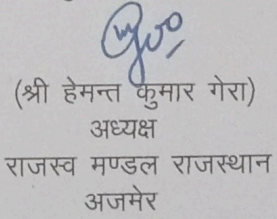 (श्री हेमन्त कुमार गेरा)
अध्यक्ष
राजस्व मण्डल राजस्थान
अजमेर